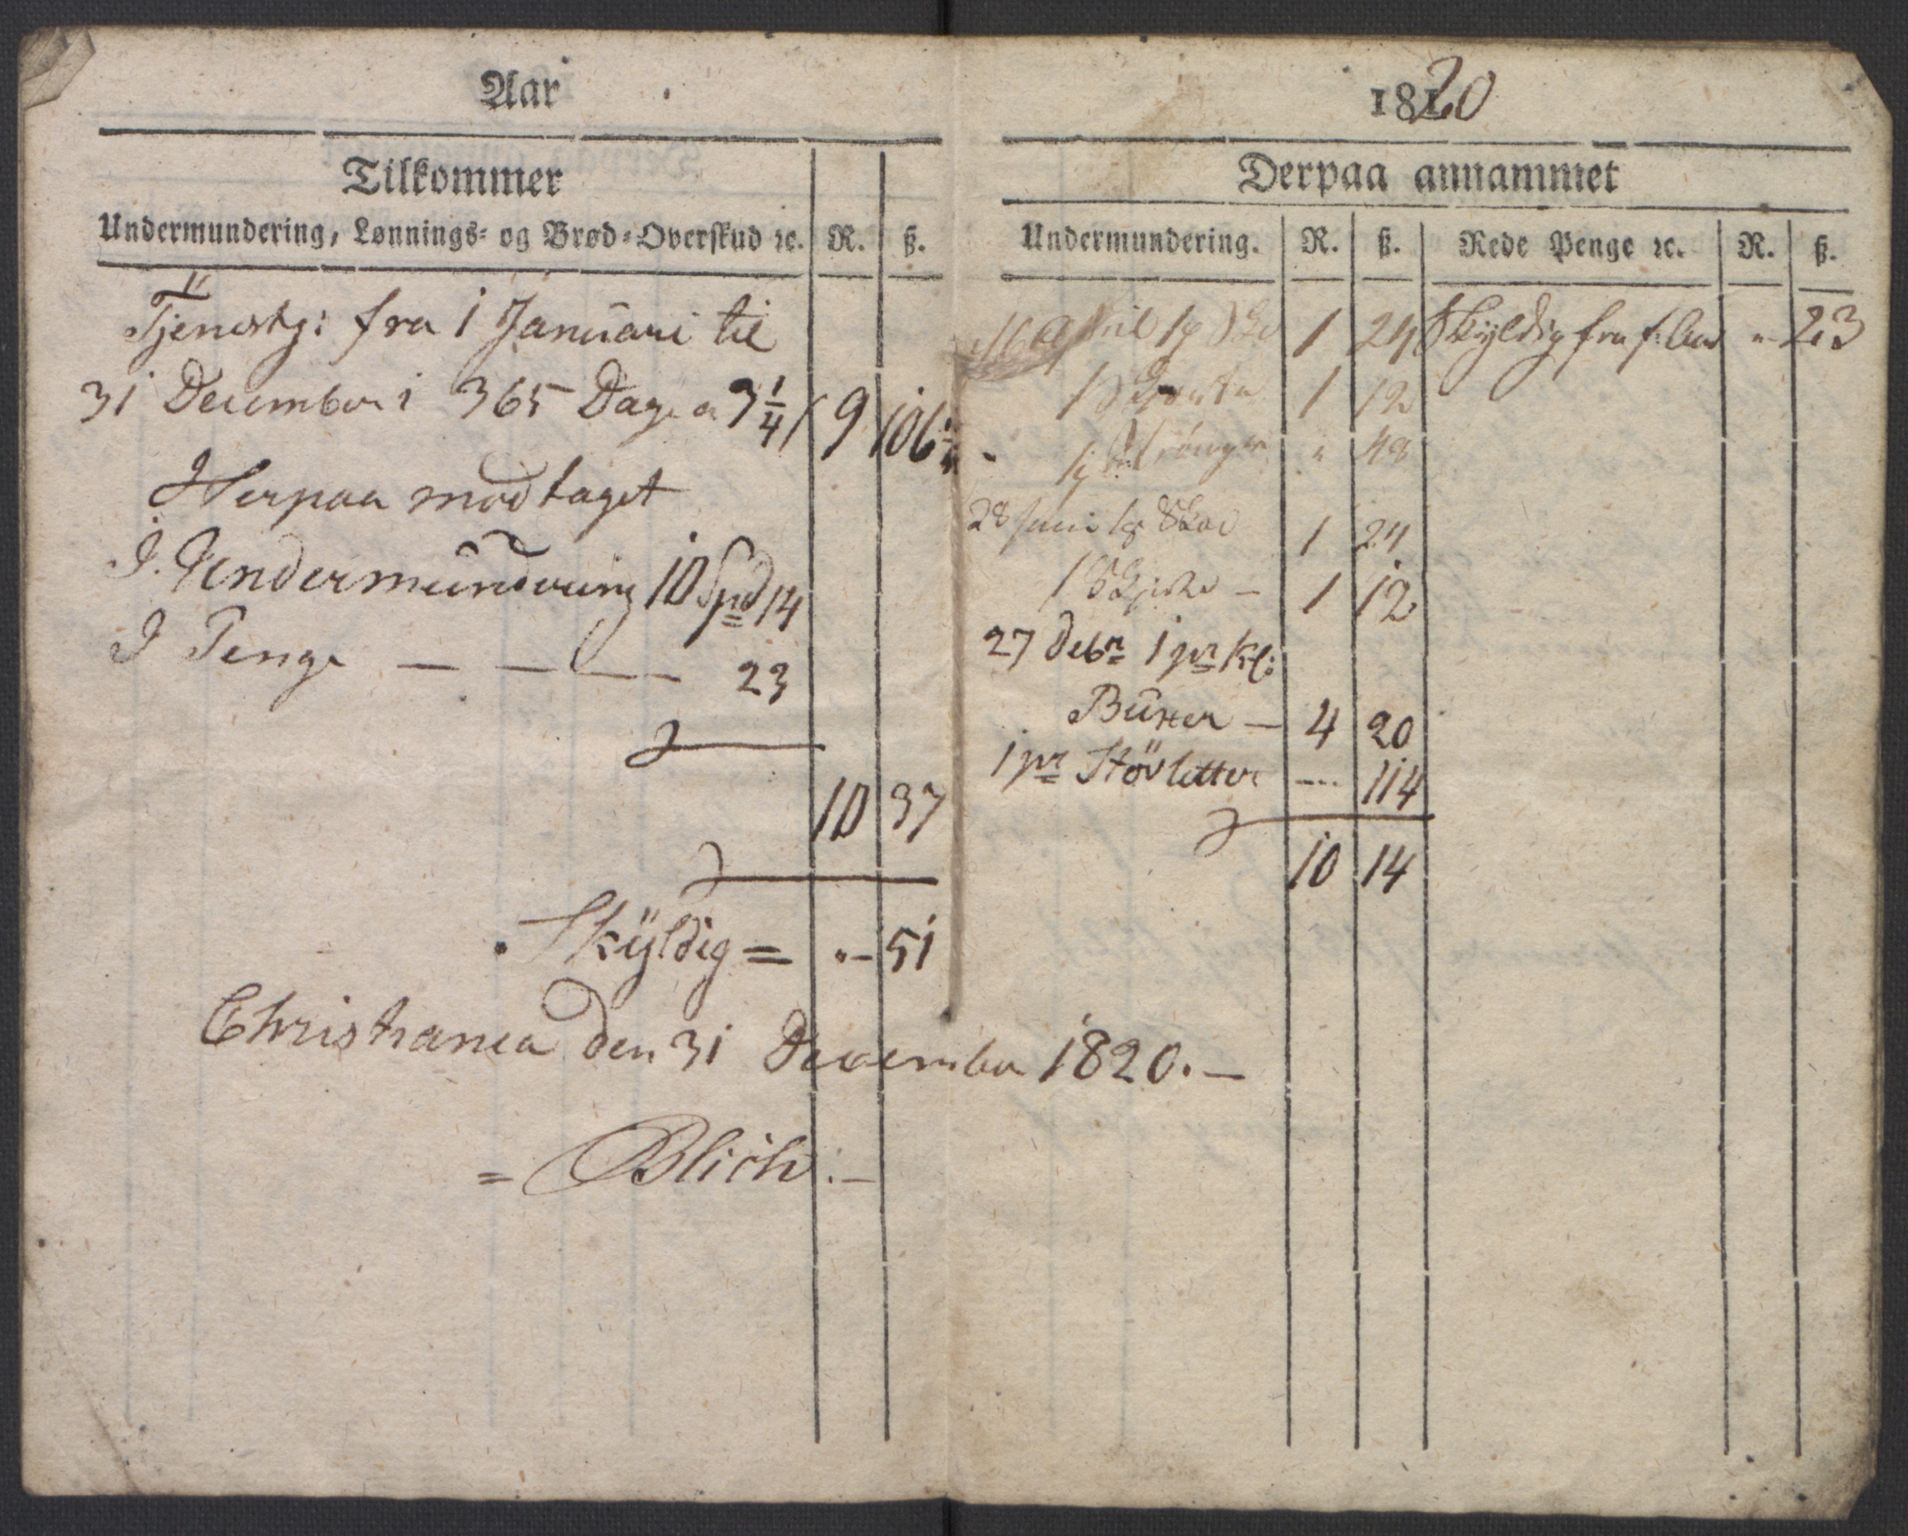 Aar
Tilkommer
Undermundering, Lønnings- og Brød-Overskud ꝛc. R. ß.
Tjenestg: fra 1 Januari til
31 December i 365 Dage a 3¼ ß 9 106¼
Herpaa modtaget
I Undermundering 10 Spd 14
I Penge — — — — 23
10 37
Skÿldig = " – 51
Christiania den 31 December 1820. —
= Blich: —
1820
Derpaa annammet
Undermundering. R. ß. Rede Penge ꝛc. R. ß.
April 1 pr Sko 1 24 Skyldig fra f: Aar " 23
1 Skjorte 1 12
1 pr Strömper " 48
28 Juni 1 pr Skoe 1 24
1 Skjorte — 1 12
27 Debr 1 pr Kl:
Buxer — 4 20
1 pr Stövletter ---- 114
10 14